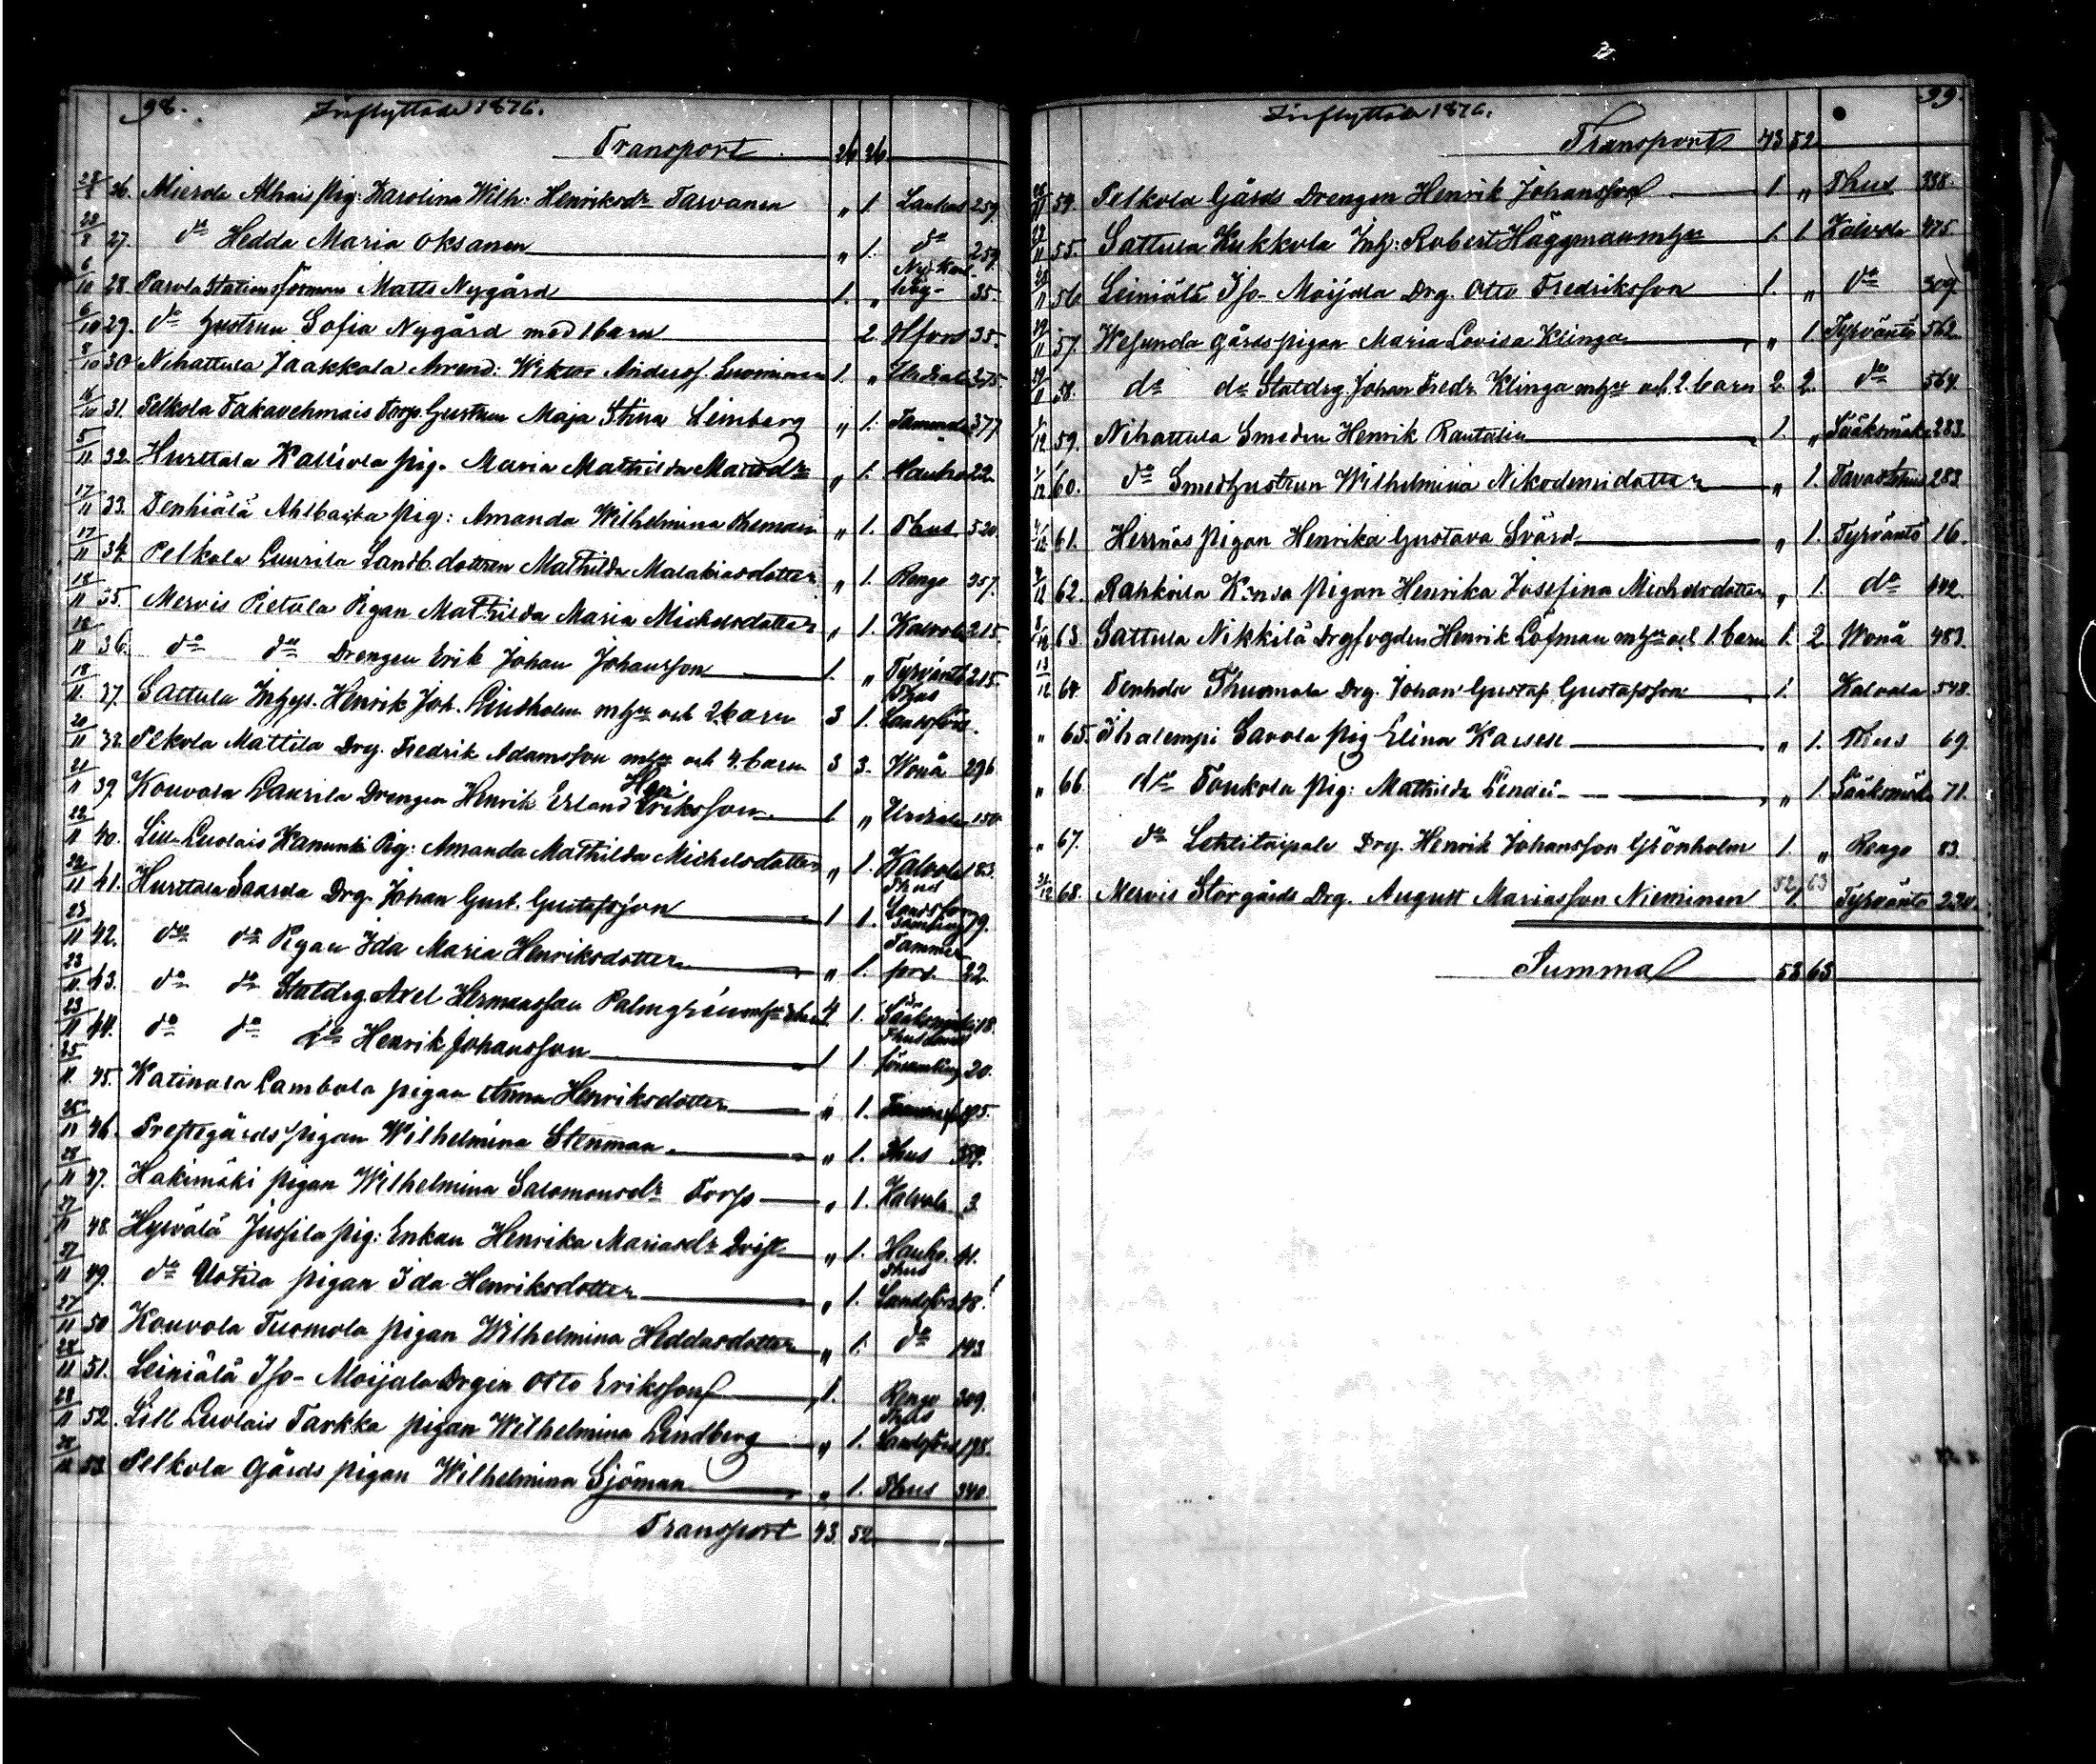 98. Inflyttade 1876.
Transport 26 26
28/8 26. Mierola Alhais Pig: Karolina Wilh: Henriksdr Tarvanen " 1. Laukas 259.
28/8 27. do Hedda Maria Oksanen " 1. do 259.
6/10 28. Parola Stations förman Matts Nygård 1. " 35.
6/10 29. do hustrun Sofia Nygård med 1 barn 2 Hfors 35.
8/10 30 Nihattula Jaakkola Arrend: Wiktor Anderss. Suominen 1. " Urdiala 275.
16/10 31. Pelkola Takavehmais Torp. hustrun Maja Stina Leinberg " 1. Tammela 377
5/11 32. Hurttala Kalliola pig. Maria Mathilda " 1. Hauho 22.
17/11 33. Tenhiälä Ahlbacka pig: Amanda Wilhelmina " 1. Thus 520
17/11 34. Pelkola Luurila Landb. dottren Mathilda Malakiasdotter " 1. Renge 357.
18/11 35. Mervis Pietola Pigan Mathilda Maria Michelsdotter " 1. Kalvola 215.
18/11 36. do do Drengen Erik Johan Johansson 1. " Tyrväntö 215.
18/11 37. Sattula Inhys. Henrik Joh. Lindholm m hu och 2 barn 3 1. Thus Landsförs.
20/11 38. Pelkola Mattila Drg. Fredrik Adamsson m hu och 4 barn 3 3. Wonå 296
21/11 39. Kouvola Laurila Drengen Henrik Erland Eriksson 1 " Urdiala 150
22/11 40. Lill-Luolais Hanunki Pig: Amanda Mathilda Michelsdotter " 1. Kalvola 183.
22/11 41. Hurttala Saarela Drg. Johan Gust. Gustafsson 1 1. Thus Landsför samling 79.
23/11 42. do do Pigan Ida Maria Henriksdotter " 1. Tammer fors 22
23/11 43. do do Staldrg. Axel Hermansson Palmgrén m hu 3 barn 4 1. Sääksmäki 18.
23/11 44. do do do Henrik Johansson 1 1. Thus Lands församling 20.
25/11 45. Katinala Lambola pigan Anna Henriksdotter " 1. 195.
25/11 46. Prestgårds pigan Wilhelmina Stenman " 1. Thus
28/11 47. Hakimäki pigan Wilhelmina Salomonsdr Torp " 1. Kalvola 3.
27/11 48. Hyrvälä Jussila pig: Enkan Henrika Mariasdr Qvist " 1. Hauho 41.
27/11 49. do Uotila pigan Ida Henriksdotter " 1. Thus Landsförs 48.
27/11 50 Kouvola Tuomola pigan Wilhelmina Heddasdotter " 1. do 143
28/11 51. Leiniälä Iso-Moijala Drgen Otto Eriksson 1. Renge 309.
28/11 52. Lill Luolais Tarkka pigan Wilhelmina Lindberg " 1. Thus Landsförs 198.
28/11 53 Pelkola Gårds pigan Wilhelmina Sjöman " 1. Thus 340
Transport 43. 52
99.
Inflyttade 1876.
Transport 43 52
28/11 54. Pelkola Gårds Drengen Henrik Johansson 1. " Thus 338.
29/11 55. Sattula Kukkola Inh: Robert Häggman m hu 1. 1. Kalvola 475
28/11 56 Leiniälä Iso-Moijala Drg. Otto Fredriksson 1. " do 309.
29/11 57. Wesunda gårds pigan Maria Lovisa Klinga " 1. Tyrväntö 562
29/11 58. do do Staldrg. Johan Fredr. Klinga m hu och 2 barn 2 2. do 564.
1/12 59. Nihattula Smeden Henrik Rantalin 1. " Sääksmäki 283
1/12 60. do Smedhustrun Wilhelmina Nikodemidotter " 1. Tavastehus 283
4/12 61. Herrnäs pigan Henrika Gustava Svärd " 1. Tyrväntö 16.
12 62. Rahkoila pigan Henrika Josefina Michelsdotter " 1. do 442.
12 63 Sattula Nikkilä Drgfogden Henrik Löfman m hu och 1. barn 1. 2 Wonå 483.
13/12 64. Tenhola Thuomola Drg. Johan Gustaf Gustafsson 1. Kalvola 548
" 65. Ihalempi Savola pig Elina Kaisen " 1. Thus 69.
" 66 do Toukola pig: Mathilda Lindén " 1. Sääksmäki 71.
" 67. do Lehtitaipale Drg. Henrik Johansson Grönholm 1. " Renge 83
31/12 68. Mervis Storgårds Drg. August Mariasson Nieminen 1. Tyrväntö 220.
52 63
Summa 53 63